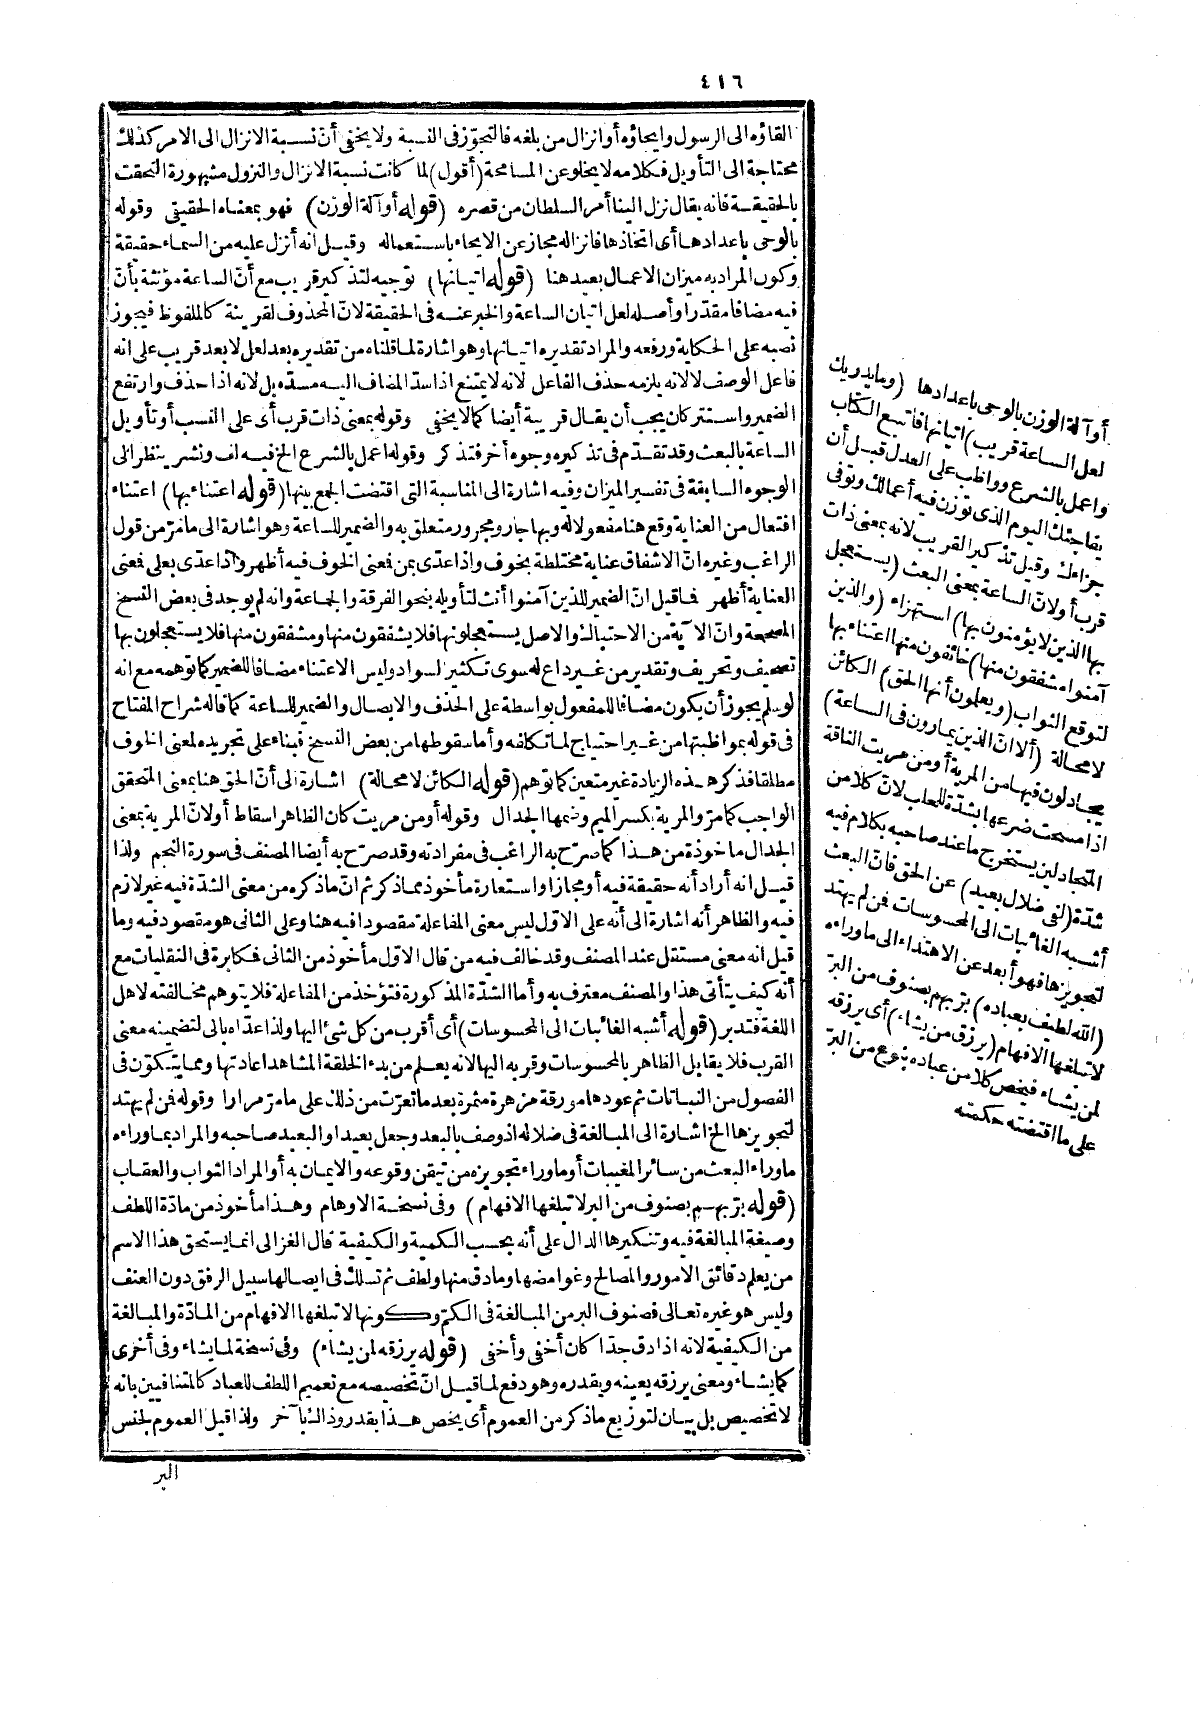 ٤١٦
القاؤه الى الرسول وايحاؤه أو انزال من بلغه فالتجوّز فى النسبة ولا يخفى أنّ نسبة الانزال الى الامر كذلك
محتاجة الى التأويل فكلامه لا يخلو عن المسامحة (أقول) لما كانت نسبة الانزال والنزول مشهورة التحقت
بالحقيقة فانه يقال نزل الينا أمر السلطان من قصره (قوله أو آلة الوزن) فهو بمعناه الحقيقى وقوله
بالوحى باعدادها أى اتخاذها فانزاله مجاز عن الايحاء باستعماله وقيل انه أنزل عليه من السماء حقيقة
وكون المراد به ميزان الاعمال بعيد هنا (قوله اتيانها) توجيه لتذكير قريب مع أنّ الساعة مؤنثة بأنّ
فيه مضافا مقدّرا وأصله لعل اتيان الساعة والخبر عنه فى الحقيقة لانّ المحذوف لقرينة كالملفوظ فيجوز
نصبه على الحكاية ورفعه والمراد تقديره اتيانها وهو اشارة لما قلناه من تقديره بعد لعل لا بعد قريب على انه
فاعل الوصف لا لانه يلزمه حذف الفاعل لانه لا يمتنع اذا سدّ المضاف اليه مسدّه بل لانه اذا حذف وارتفع
الضمير واستتر كان يجب أن يقال قريبة أيضا كما لا يخفى وقوله بمعنى ذات قرب أى على النسب أو تأويل
الساعة بالبعث وقد تقدّم فى تذكيره وجوه أخر فتذكر وقوله اعمل بالشرع الخ فيه لف ونشر ينظر الى
الوجوه السابقة فى تفسير الميزان وفيه اشارة الى المناسبة التى اقتضت الجمع بينها (قوله اعتناء بها) اعتناء
افتعال من العناية وقع هنا مفعولا له وبها جار ومجرور متعلق به والضمير للساعة وهو اشارة الى ما مرّ من قول
الراغب وغيره انّ الاشفاق عناية مختلطة بخوف واذا عدى بمن فمعنى الخوف فيه أظهر واذا عدّى بعلى فمعنى
العناية أظهر فاقيل انّ الضمير للذين آمنوا أنث لتأويله بنحو الفرقة والجماعة وانه لم يوجد فى بعض النسخ
المصححة وانّ الآية من الاحتباك والاصل يستعجلونها فلا يشفقون منها ومشفقون منها فلا يستعجلون بها
تصحيف وتحريف وتقدير من غير داع له سوى تكثير السواد وليس الاعتناء مضافا للضمير كما توهمه مع انه
لو سلم يجوز أن يكون مضافا للمفعول بواسطة على الحذف والايصال والضمير للساعة كما قاله شراح المفتاح
فى قوله بمواظبتها من غير احتياج لما تكلفه وأما سقوطها من بعض النسخ فبناء على تجريده لمعنى الخوف
مطلقا فذكر هذه الزيادة غير متعين كما توهم (قوله الكائن لا محالة) اشارة الى أنّ الحق هنا بمعنى المتحقق
الواجب كما مرّ والمرية بكسر الميم وضمها الجدال وقوله أو من مريت كان الظاهر اسقاط أو لانّ المرية بمعنى
الجدال مأخوذة من هذا كما صرّح به الراغب فى مفرداته وقد صرّح به أيضا المصنف فى سورة النجم ولذا
قيل انه أراد أنه حقيقة فيه أو مجازا واستعارة مأخوذ مما ذكر ثم انّ ما ذكره من معنى الشدّة فيه غير لازم
فيه والظاهر أنه اشارة الى أنه على الاوّل ليس معنى المفاعلة مقصودا فيه هنا وعلى الثانى هو مقصود فيه وما
قيل انه معنى مستقل عند المصنف وقد خالف فيه من قال الاوّل مأخوذ من الثانى فكابرة فى النقليات مع
أنه كيف يتأتى هذا والمصنف معترف به وأما الشدّة المذكورة فتؤخذ من المفاعلة فلا يتوهم مخالفته لاهل
اللغة فتدبر (قوله أشبه الغائبات الى المحسوسات) أى أقرب من كل شئ اليها ولذا عدّاه بالى لتضمينه معنى
القرب فلا يقابل الظاهر بالمحسوسات وقربه اليها لانه يعلم من بدء الخلقة المشاهد اعادتها ومما يتكوّن فى
الفصول من النباتات ثم عودها مورقة مزهرة مثمرة بعد ما تعرّت من ذلك على ما مرّ مرارا وقوله فمن لم يهتد
لتجويزها الخ اشارة الى المبالغة فى ضلاله اذ وصف بالبعد وجعل بعيدا والبعيد صاحبه والمراد بما وراءه
ما وراء البعث من سائر المغيبات أو ما وراء تجويزه من تيقن وقوعه والايمان به أو المراد الثواب والعقاب
(قوله برّ بهم بصنوف من البر لا تبلغها الافهام) وفى نسخة الاوهام وهذا مأخوذ من مادّة اللطف
وصيغة المبالغة فيه وتنكيرها الدال على أنه بحسب الكمية والكيفية قال الغزالى انما يستحق هذا الاسم
من يعلم دقائق الامور والمصالح وغوامضها وما دق منها ولطف ثم تسلك فى ايصالها سبيل الرفق دون العنف
وليس هو غيره تعالى فصنوف البر من المبالغة فى الكمّ وكونها لا تبلغها الافهام من المادّة والمبالغة
من الكيفية لانه اذا دق جدّا كان أخفى وأخفى (قوله يرزقه لمن يشاء) وفى نسخة لما يشاء وفى أخرى
كما يشاء ومعنى يرزقه يعينه ويقدره وهو دفع لما قيل انّ تخصيصه مع تعميم اللطف للعباد كالمتنافيين بانه
لا تخصيص بل بيان لتوزيع ما ذكر من العموم أى يخص هذا بقدر وذاك بآخر ولذا قيل العموم لجنس
البر
أو آلة الوزن بالوحى باعدادها (وما يدريك
لعل الساعة قريب) اتيانها فاتبع الكتاب
واعمل بالشرع وواظب على العدل قبل أن
يفاجئك اليوم الذى توزن فيه أعمالك وتوفى
جزاءك وقيل تذكير القريب لانه بمعنى ذات
قرب أو لانّ الساعة بمعنى البعث (يستعجل
بها الذين لا يؤمنون بها) استهزاء (والذين
آمنوا مشفقون منها) خائفون منها اعتناء بها
لتوقع الثواب (ويعلمون أنها الحق) الكائن
لا محالة (ألا انّ الذين يمارون فى الساعة)
يجادلون فيها من المرية أو من مريت الناقة
اذا مسحت ضرعها بشدّة للحلب لانّ كلا من
المتجادلين يستخرج ما عند صاحبه بكلام فيه
شدّة (لفى ضلال بعيد) عن الحق فانّ البعث
أشبه الغائبات الى المحسوسات فمن لم يهتد
لتجويزها فهو أبعد عن الاهتداء الى ما وراءه
(الله لطيف بعباده) برّ بهم بصنوف من البرّ
لا تبلغها الافهام (يرزق من يشاء) أى يرزقه
لمن يشاء فيخص كلا من عباده بنوع من البرّ
على ما اقتضته حكمته